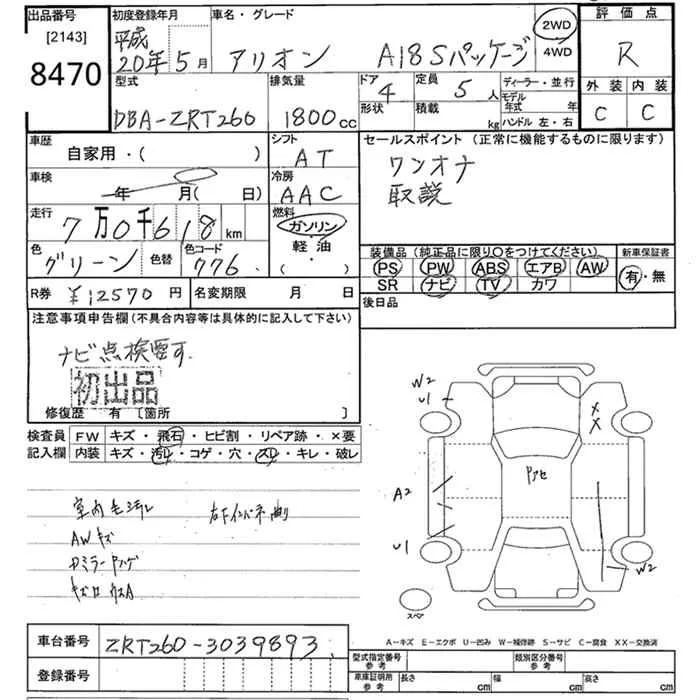 出品番号 初度登録年月 車名・グレード 評価点
[2143] 平成 2WD
8470 20年5月 アリオン A18Sパッケージ 4WD R
型式 排気量 ドア 定員 ディーラー・並行 外装 内装
DBA-ZRT260 1800cc 4 5人 モデル年式 年 C C
形状 積載 kg ハンドル 左・右
車歴 シフト セールスポイント(正常に機能するものに限ります)
自家用・( ) AT ワンオナ
車検 冷房 取説
年 月( 日) AAC
走行 燃料
7万0千618km ガソリン
色 色替 色コード 軽油 装備品(純正品に限り○をつけてください。) 新車保証書
グリーン 776 ・( ) PS PW ABS エアB AW 有・無
R券 ¥12570円 名変期限 月 日 SR ナビ TV カワ
後日品
注意事項申告欄(不具合内容等は具体的に記入して下さい)
ナビ点検要す.
初出品
修復歴 有 [箇所 ]
検査員 FW キズ・飛石・ヒビ割・リペア跡・×要
記入欄 内装 キズ・汚れ・コゲ・穴・スレ・キレ・破レ
W2
U1
XX
Pアセ
A2
U1
W2
室内毛汚れ 右下インパネ
AWキズ
スペア
A-キズ E-エクボ U-凹み W-補修跡 S-サビ C-腐食 XX-交換済
車台番号 ZRT260-3039893
型式指定番号 参考 類別区分番号 参考
登録番号 車庫証明用 参考 長さ cm 幅 cm 高さ cm